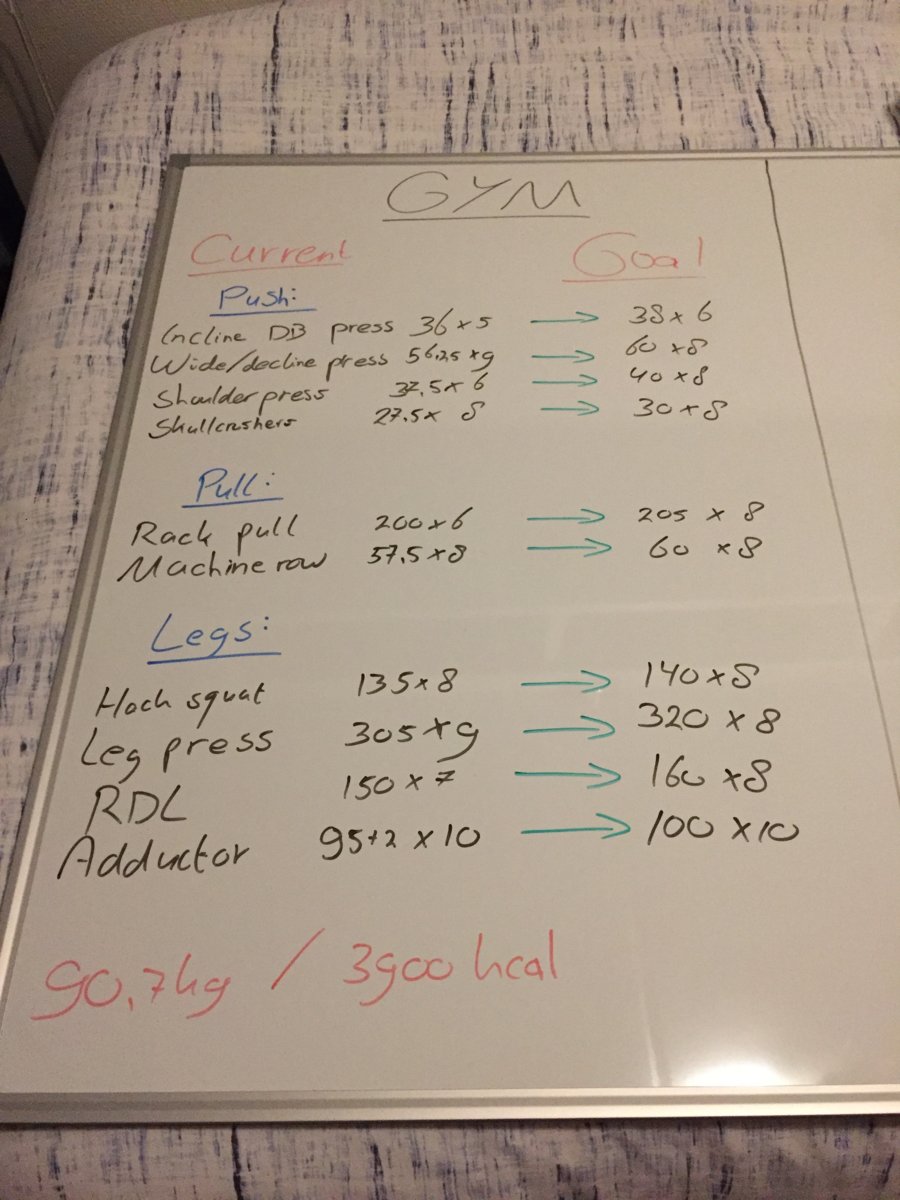 GYM
Current Goal
Push:
Incline DB press 36 x 5 → 38 x 6
Wide/decline press 56,25 x 9 → 60 x 8
Shoulder press 37,5 x 6 → 40 x 8
Skullcrushers 27,5 x 8 → 30 x 8
Pull:
Rack pull 200 x 6 → 205 x 8
Machine row 57,5 x 8 → 60 x 8
Legs:
Hack squat 135 x 8 → 140 x 8
Leg press 305 x 9 → 320 x 8
RDL 150 x 7 → 160 x 8
Adductor 95+2 x 10 → 100 x 10
90,7kg / 3900 kcal